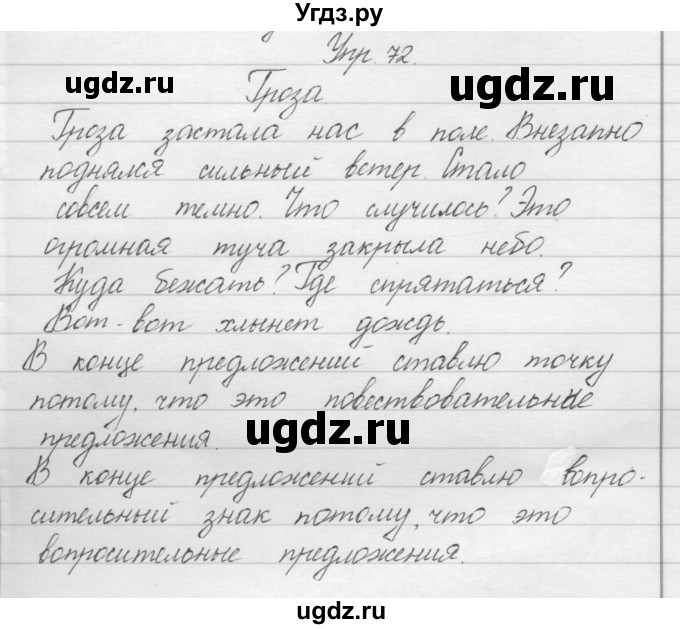 Угдз.ру
Упр. 72.
ugdz.ru
ugdz.ru
Гроза.
Гроза застала нас в поле. Внезапно
поднялся сильный ветер. Стало
совсем темно. Что случилось? Это
огромная туча закрыла небо.
Куда бежать? Где спрятаться?
Вот-вот хлынет дождь.
В конце предложений ставлю точку
потому, что это повествовательные
предложения.
ugdz.ru
В конце предложений ставлю вопро-
сительный знак потому, что это
вопросительные предложения.
ugdz.ru